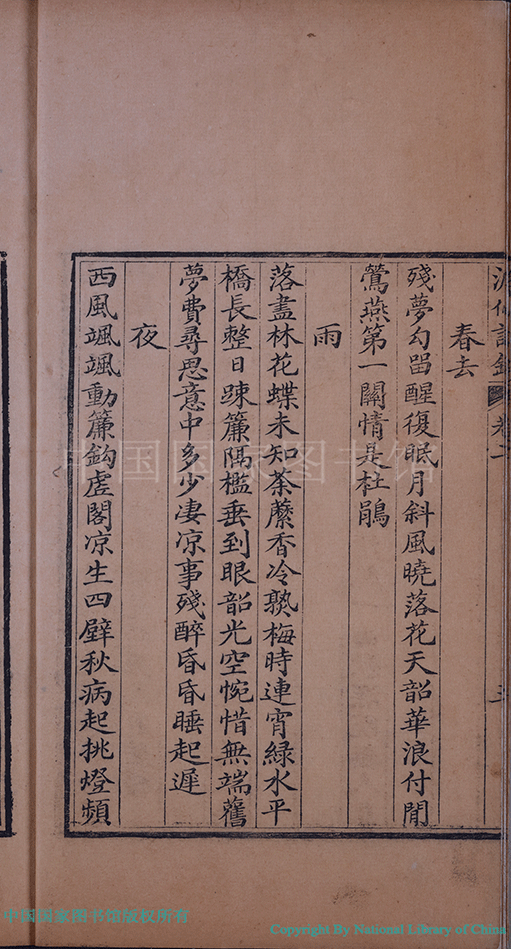 春去
殘夢勾留醒復眠月斜風曉落花天韶華浪付閒
鶯燕第一關情是杜鵑
雨
落盡林花蝶未知荼蘼香冷熟梅時連宵綠水平
橋長整日疎簾隔檻垂到眼韶光空惋惜無端舊
夢費尋思意中多少凄凉事殘醉昏昏睡起遲
夜
西風颯颯動簾鈎虛閣凉生四壁秋病起挑燈頻
中国国家图书馆
中国国家图书馆版权所有
Copyright By National Library of China